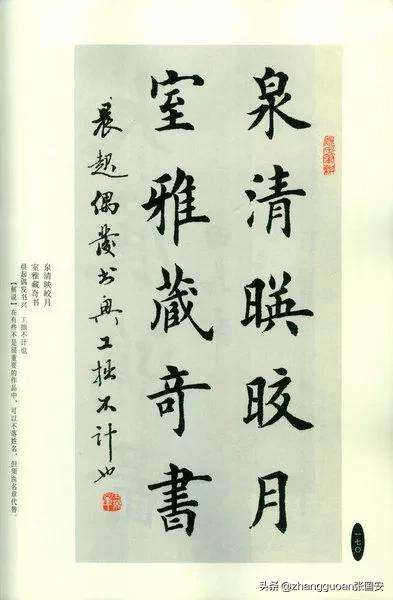 泉清暎晈月
室雅藏奇書
晨起偶發書興工拙不計也
泉清映皎月
室雅藏奇书
晨起偶发书兴 工拙不计也
【解说】在有些不是很重要的作品中，可以不落姓名，但须由名章代替。
一七〇
头条 @zhangguoan张国安